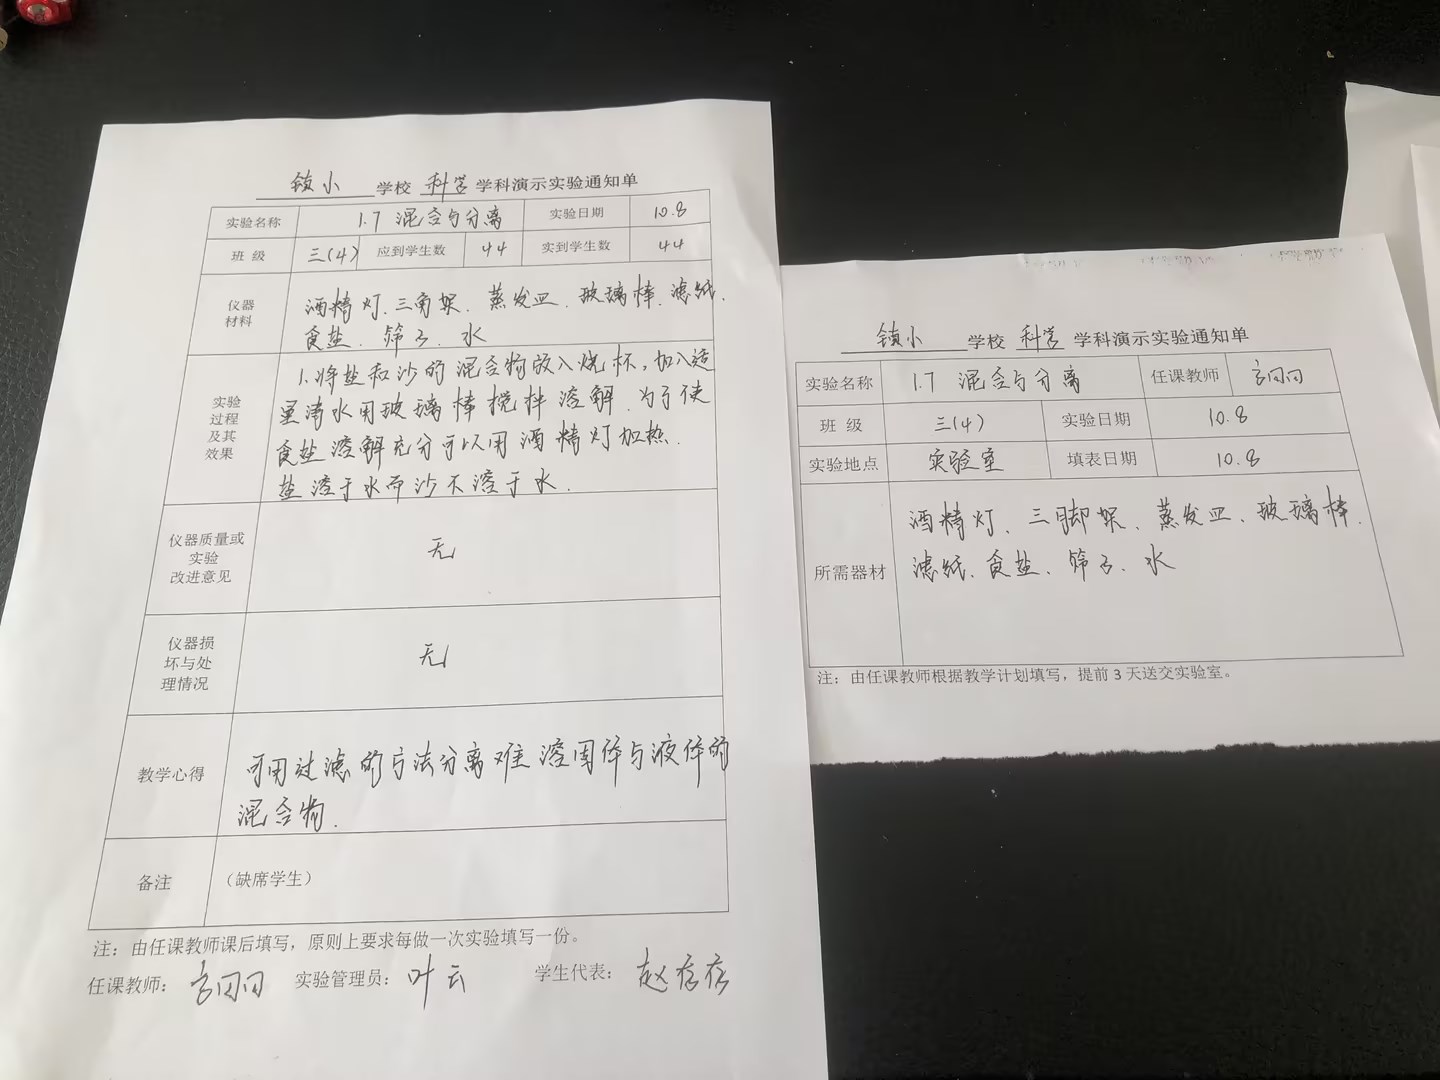 镇小 学校 科学 学科演示实验通知单
实验名称 1.7 混合与分离 实验日期 10.8
班 级 三(4) 应到学生数 44 实到学生数 44
仪器材料 酒精灯、三角架、蒸发皿、玻璃棒、滤纸、
食盐、筛子、水
实验过程及其效果
1.将盐和沙的混合物放入烧杯,加入适
量清水用玻璃棒搅拌溶解.为了使
食盐溶解充分可以用酒精灯加热.
盐溶于水而沙不溶于水.
仪器质量或实验改进意见 无
仪器损坏与处理情况 无
教学心得 可用过滤的方法分离难溶固体与液体的
混合物.
备注 (缺席学生)
注:由任课教师课后填写,原则上要求每做一次实验填写一份。
任课教师: 实验管理员:叶云 学生代表:赵
镇小 学校 科学 学科演示实验通知单
实验名称 1.7 混合与分离 任课教师
班 级 三(4) 实验日期 10.8
实验地点 实验室 填表日期 10.8
所需器材 酒精灯、三脚架、蒸发皿、玻璃棒、
滤纸、食盐、筛子、水
注:由任课教师根据教学计划填写,提前3天送交实验室。